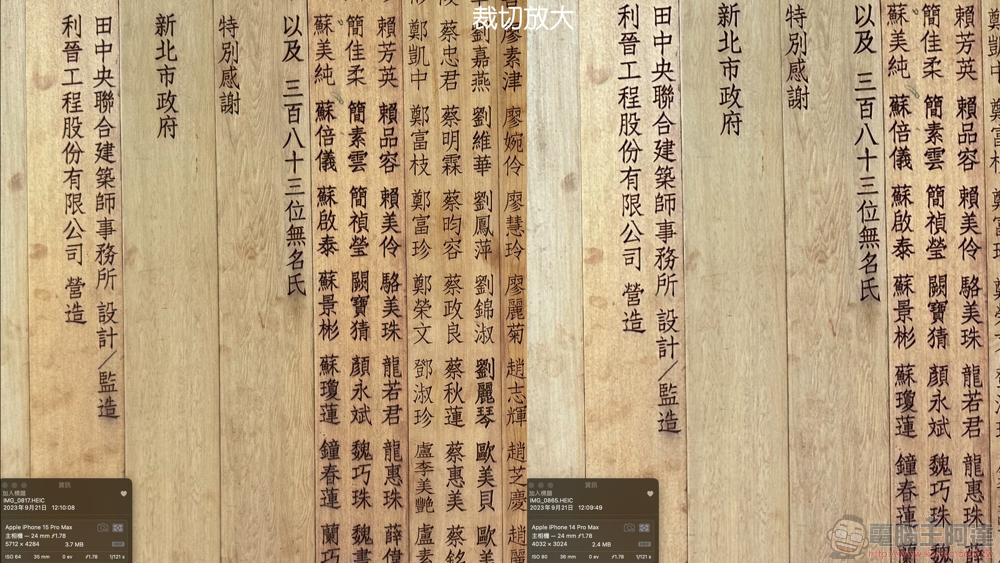 裁切放大
廖素津 廖婉伶 廖慧玲 廖麗菊 趙志輝 趙芝慶 趙麗
劉嘉燕 劉維華 劉鳳萍 劉錦淑 劉麗琴 歐美貝 歐美
蔡忠君 蔡明霖 蔡昀容 蔡政良 蔡秋蓮 蔡惠美 蔡銘
鄭凱中 鄭富枝 鄭富珍 鄭榮文 鄧淑珍 盧李美艷 盧素
賴芳英 賴品容 賴美伶 駱美珠 龍若君 龍惠珠 薛偉
簡佳柔 簡素雲 簡禎瑩 闕寶猜 顏永斌 魏巧珠 魏書
蘇美純 蘇倍儀 蘇啟泰 蘇景彬 蘇瓊蓮 鐘春蓮 蘭巧
以及 三百八十三位無名氏
特別感謝
新北市政府
田中央聯合建築師事務所 設計／監造
利晉工程股份有限公司 營造
資訊
加入標題
IMG_0817.HEIC
2023年9月21日 12:10:08
Apple iPhone 15 Pro Max
主相機 — 24 mm ƒ1.78
5712 × 4284 3.7 MB
ISO 64 36 mm 0 ev ƒ1.78 1/121 s
賴芳英 賴品容 賴美伶 駱美珠 龍若君 龍惠
簡佳柔 簡素雲 簡禎瑩 闕寶猜 顏永斌 魏巧珠
蘇美純 蘇倍儀 蘇啟泰 蘇景彬 蘇瓊蓮 鐘春蓮
以及 三百八十三位無名氏
特別感謝
新北市政府
田中央聯合建築師事務所 設計／監造
利晉工程股份有限公司 營造
資訊
加入標題
IMG_0865.HEIC
2023年9月21日 12:09:49
Apple iPhone 14 Pro Max
主相機 — 24 mm ƒ1.78
4032 × 3024 2.4 MB
ISO 80 36 mm 0 ev ƒ1.78 1/121 s
電腦王阿達